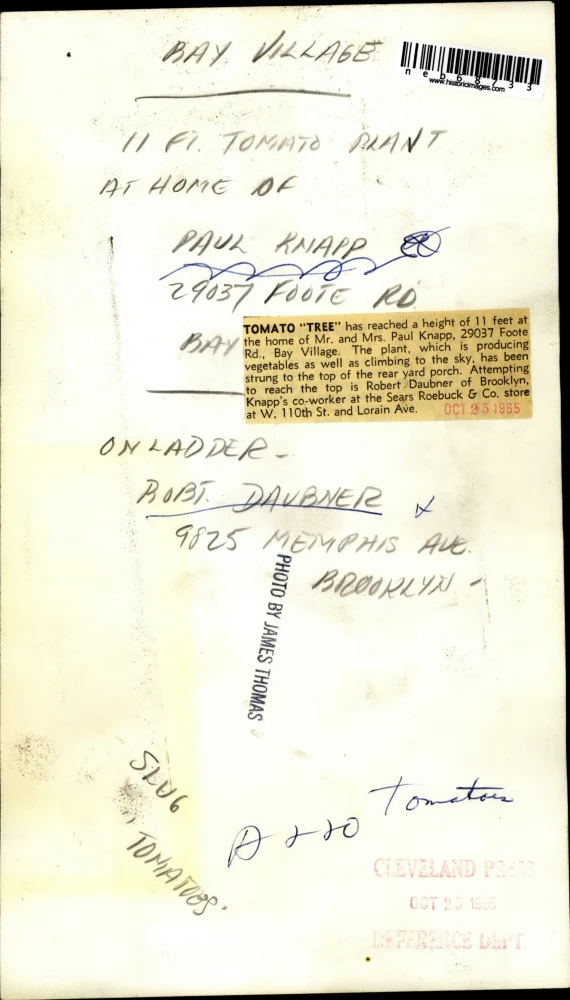 BAY VILLAGE
neb68733
www.historicimages.com
11 FT. TOMATO PLANT
AT HOME OF
PAUL KNAPP
29037 FOOTE RD
BAY
TOMATO "TREE" has reached a height of 11 feet at
the home of Mr. and Mrs. Paul Knapp, 29037 Foote
Rd., Bay Village. The plant, which is producing
vegetables as well as climbing to the sky, has been
strung to the top of the rear yard porch. Attempting
to reach the top is Robert Daubner of Brooklyn,
Knapp's co-worker at the Sears Roebuck & Co. store
at W. 110th St. and Lorain Ave.
OCT 25 1965
ON LADDER -
ROBT. DAUBNER x
9825 MEMPHIS AVE.
BROOKLYN -
PHOTO BY JAMES THOMAS
SLUG
"TOMATOES.
Tomatoes
CLEVELAND PRESS
OCT 25 1965
REFERENCE DEPT.